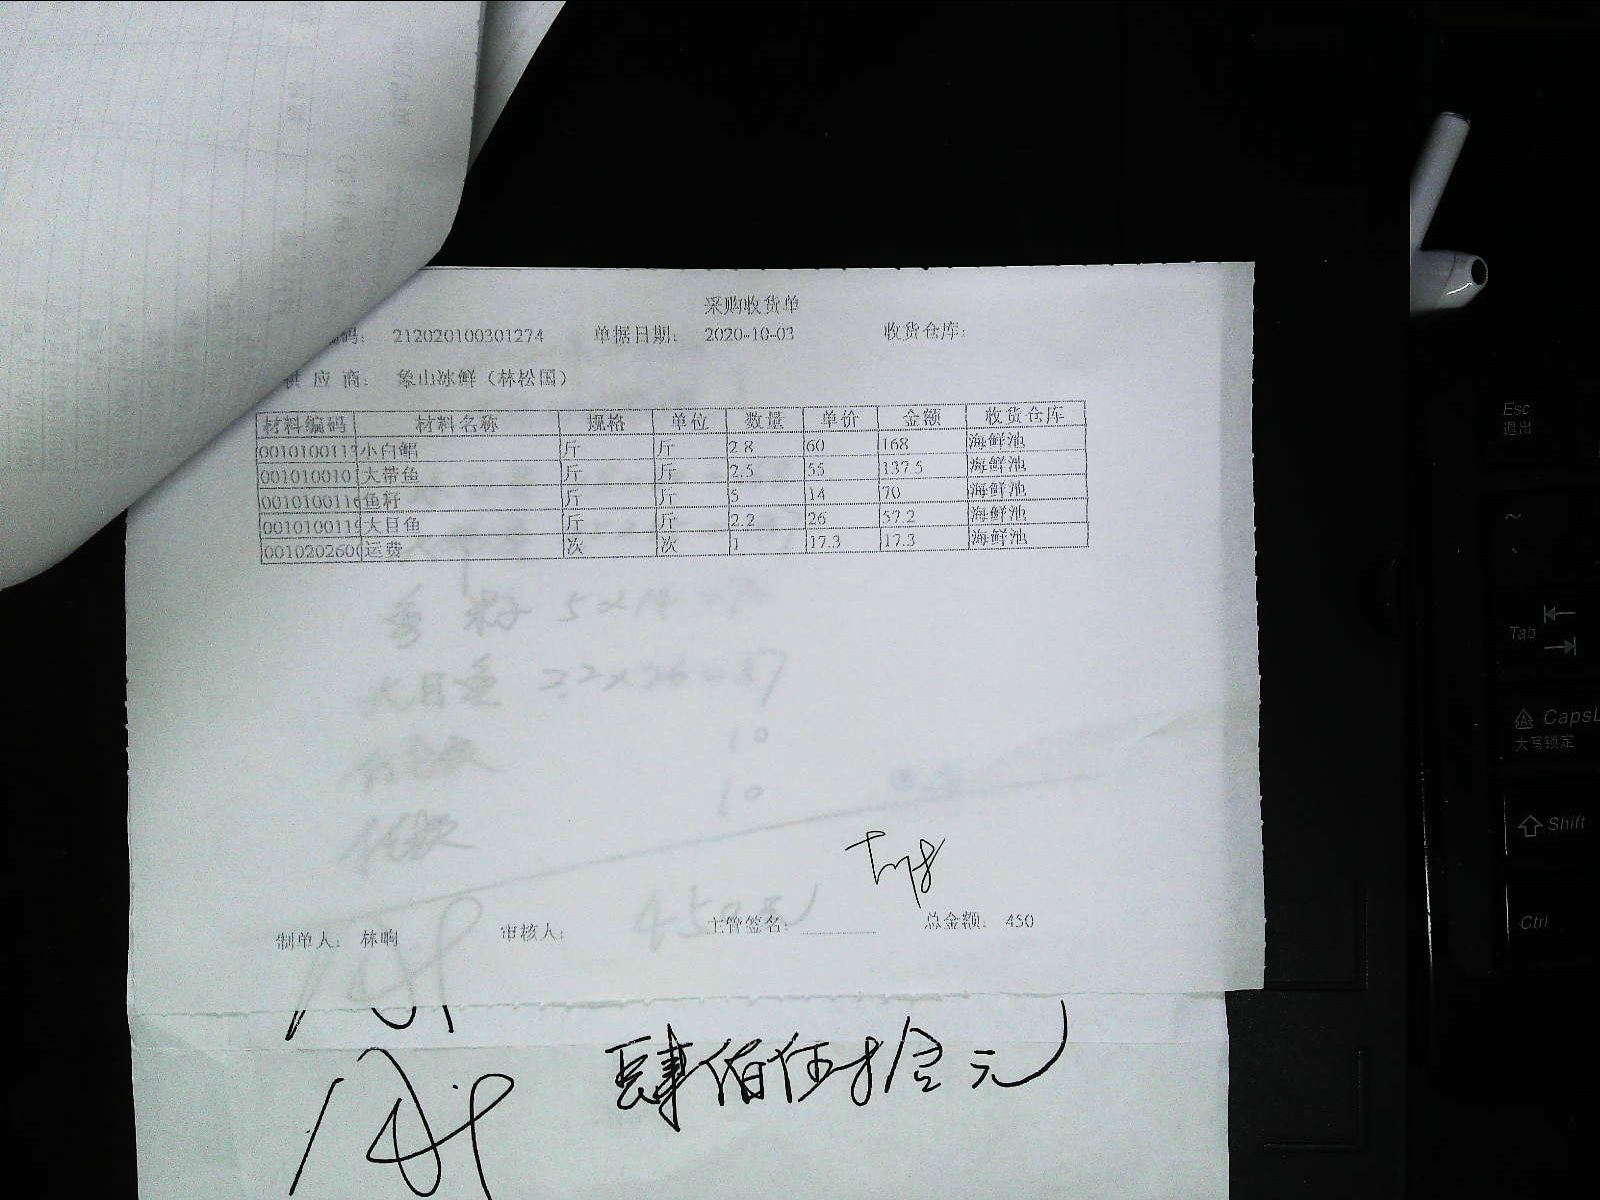 采购收货单
码： 212020100301274 单据日期： 2020-10-03 收货仓库：
供 应 商： 象山冰鲜（林松国）
材料编码 材料名称 规格 单位 数量 单价 金额 收货仓库
001010011 小白鲳 斤 斤 2.8 60 168 海鲜池
001010010 大带鱼 斤 斤 2.5 55 137.5 海鲜池
001010011 鱼籽 斤 斤 5 14 70 海鲜池
001010011 大目鱼 斤 斤 2.2 26 57.2 海鲜池
001020260 运费 次 次 1 17.3 17.3 海鲜池
鱼籽 5×14=70
大目鱼 2.2×26=57
10
10
450元
制单人： 林晌 审核人： 主管签名： 总金额： 450
肆佰伍拾元
Esc
退出
~
Tab
CapsL
大写锁定
Shift
Ctrl